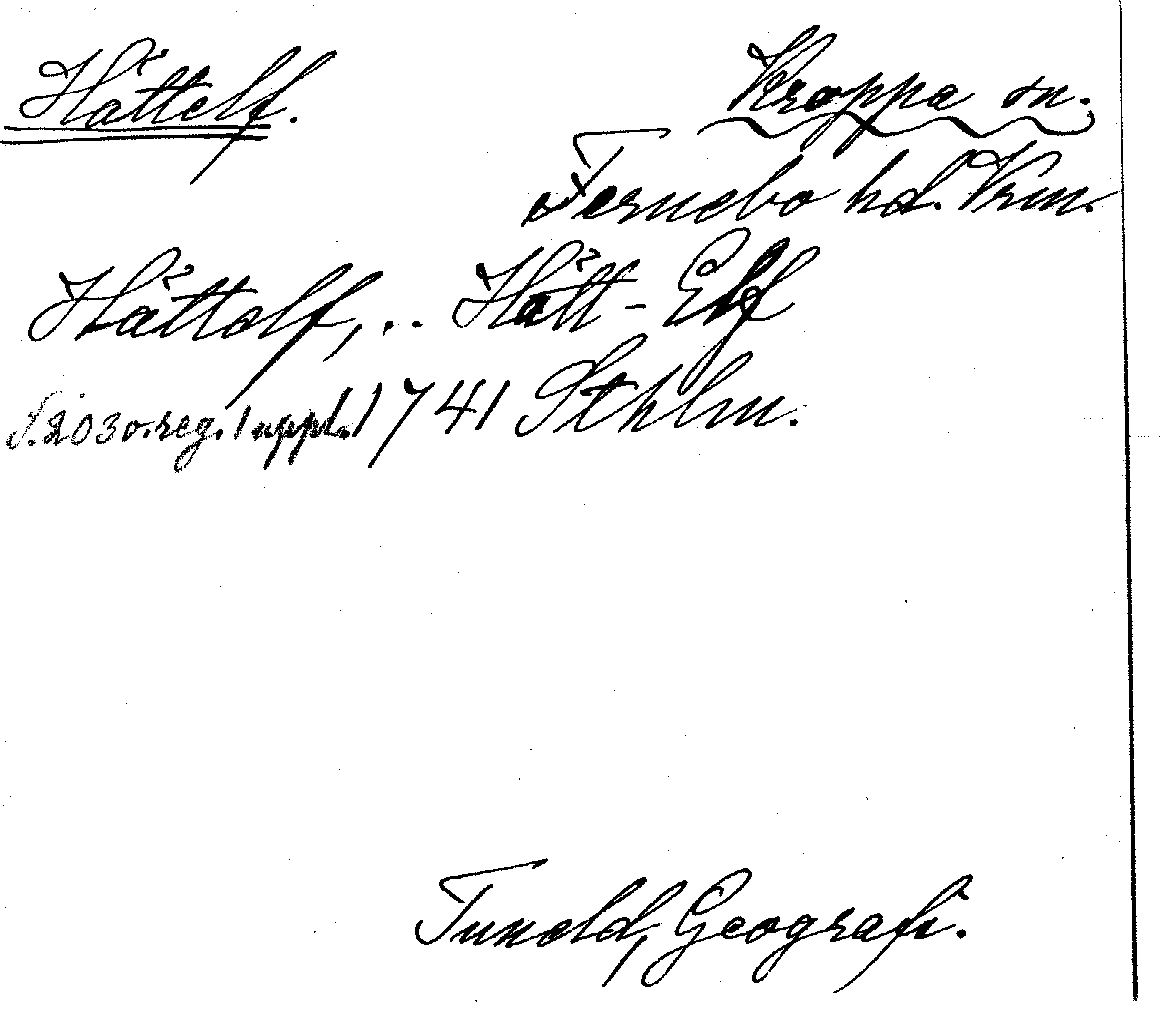 Håttelf.
Kroppa sn.
Fernebo hd. Vrm.
Håttelf, .. Hått-Elf
S. 203 o. reg. 1 uppl. 1741 Sthlm.
Tuneld, Geografi.